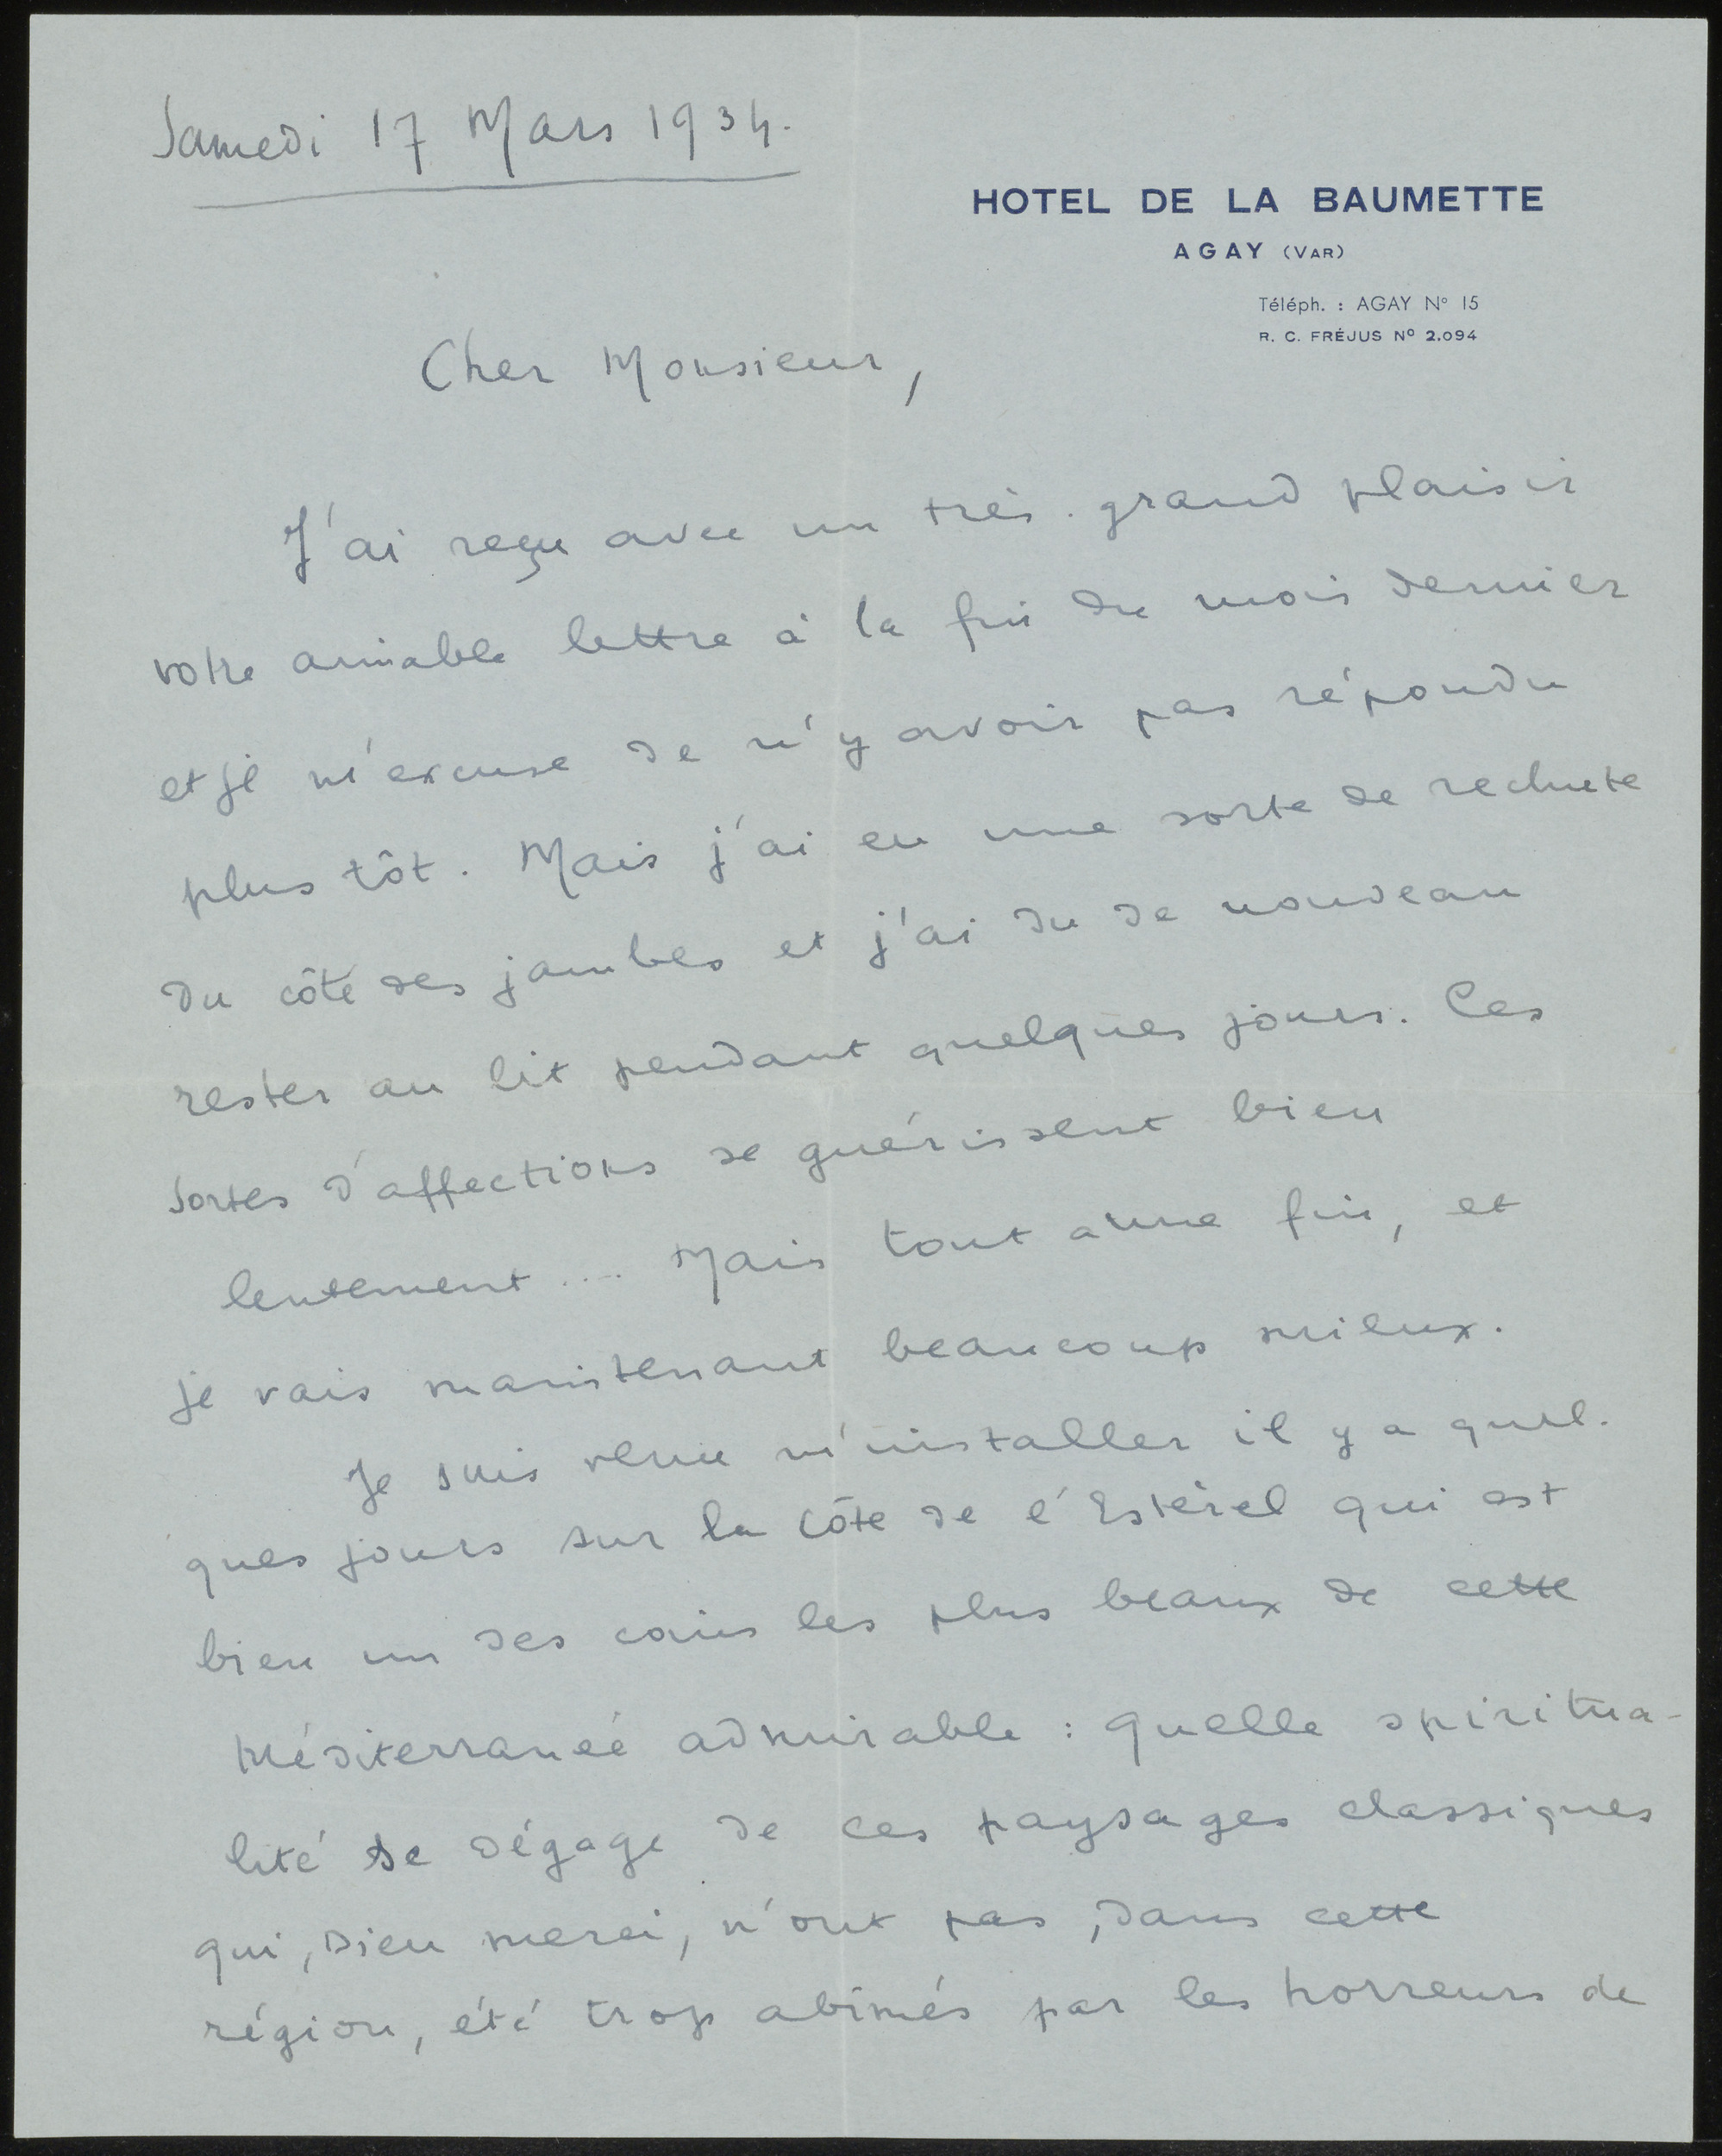 Samedi 17 Mars 1934.
HOTEL DE LA BAUMETTE
AGAY (VAR)
Téléph. : AGAY Nº 15
R. C. FRÉJUS Nº 2.094
Cher Monsieur,
J'ai reçu avec un très grand plaisir
votre aimable lettre à la fin du mois dernier
et je m'excuse de n'y avoir pas répondu
plus tôt. Mais j'ai eu une sorte de rechute
du côté des jambes et j'ai du de nouveau
rester au lit pendant quelques jours. Ces
sortes d'affections se guérissent bien
lentement .... Mais tout a une fin, et
je vais maintenant beaucoup mieux.
Je suis venu m'installer il y a quel-
ques jours sur la Côte de l'Estérel qui est
bien un des coins les plus beaux de cette
Méditerranée admirable : quelle spiritua-
lité se dégage de ces paysages classiques
qui, Dieu merci, n'ont pas, dans cette
région, été trop abîmés par les horreurs de